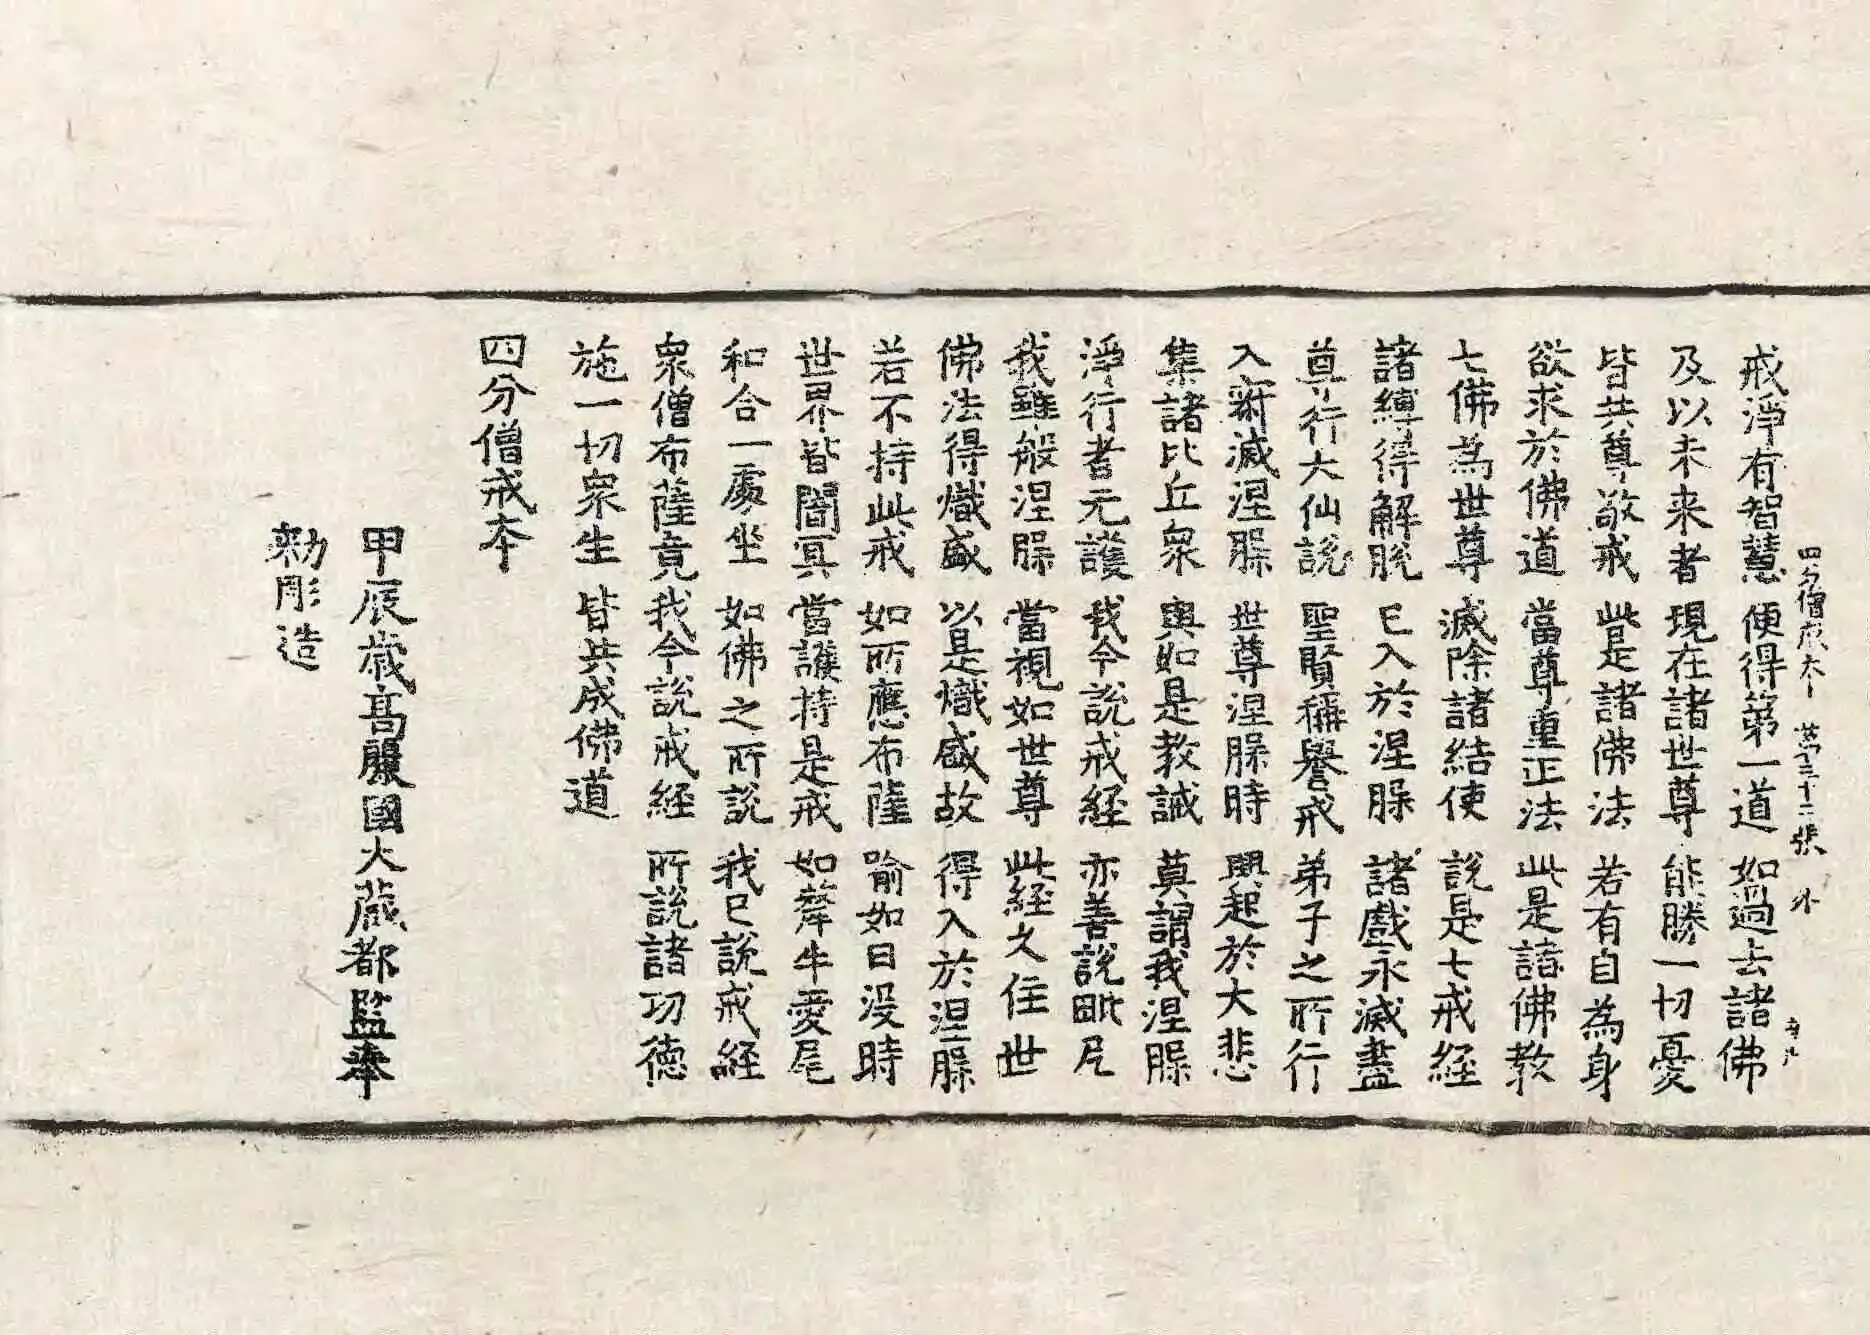 四分僧戒本 第三十二張 外
戒淨有智慧 便得第一道 如過去諸佛
及以未来者 現在諸世尊 能勝一切憂
皆共尊敬戒 此是諸佛法 若有自為身
欲求於佛道 當尊重正法 此是諸佛教
七佛為世尊 滅除諸結使 說是七戒經
諸縛得解脫 已入於涅縏 諸戲永滅盡
尊行大仙說 聖賢稱譽戒 弟子之所行
入寂滅涅槃 世尊涅槃時 興起於大悲
集諸比丘衆 與如是教誡 莫謂我涅槃
淨行者无護 我今說戒經 亦善說毗尼
我雖般涅槃 當視如世尊 此經久住世
佛法得熾盛 以是熾盛故 得入於涅槃
若不持此戒 如所應布薩 喻如日没時
世界皆闇冥 當護持是戒 如犛牛愛尾
和合一處坐 如佛之所說 我已說戒經
衆僧布薩竟 我今說戒經 所說諸功德
施一切衆生 皆共成佛道
四分僧戒本
甲辰歲高麗國大藏都監奉
勑彫造